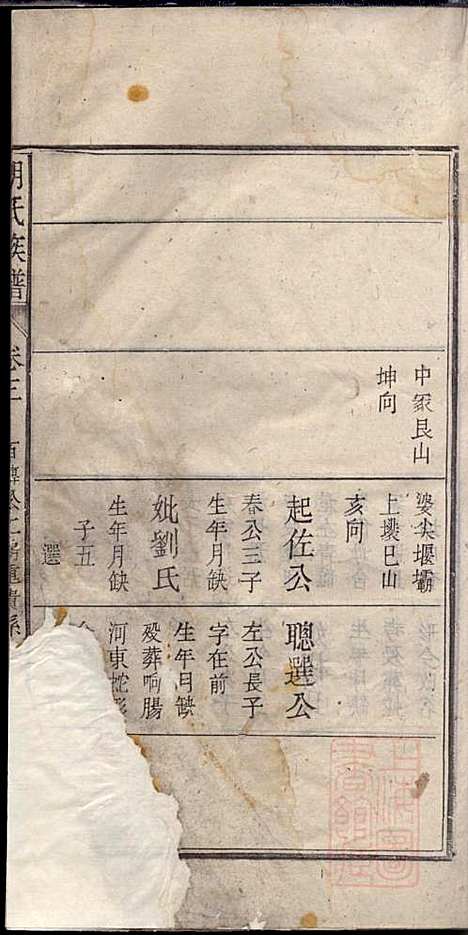 中冢艮山
坤向
婆尖堰壩
上塽巳山
亥向
起佐公
春公三子
生年月缺
妣劉氏
生年月缺
子五
選
聰選公
左公長子
字在前
生年月缺
殁葬响腸
河東蛇形
氏族譜
卷三